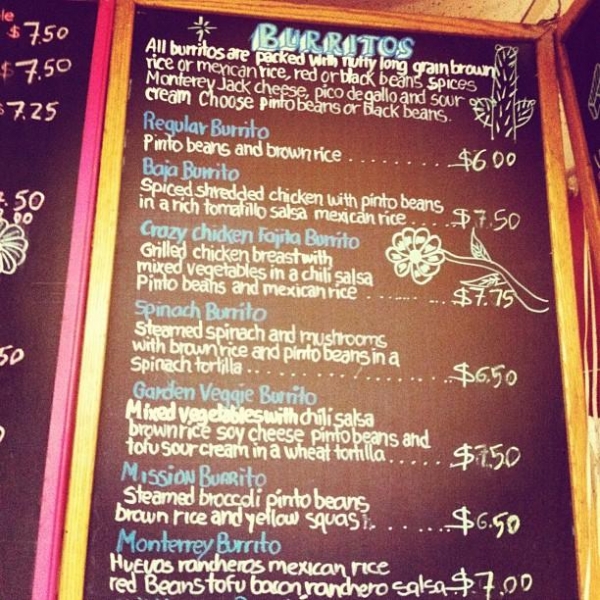 $7.50
$7.50
$7.25
.50
.00
50
BURRITOS
All burritos are packed with nutty long grain brown
rice or mexican rice, red or black beans, spices
Monterey Jack cheese, pico de gallo and sour
cream Choose pinto beans or Black beans.
Regular Burrito
Pinto beans and brown rice . . . . . . . . . $6.00
Baja Burrito
Spiced shredded chicken with pinto beans
in a rich tomatillo salsa mexican rice . . . . $7.50
Crazy chicken Fajita Burrito
Grilled chicken breast with
mixed vegetables in a chili salsa
Pinto beans and mexican rice . . . . . . . $7.75
Spinach Burrito
Steamed spinach and mushrooms
with brown rice and pinto beans in a
spinach tortilla . . . . . . . . . . . . . . . . . $6.50
Garden Veggie Burrito
Mixed vegetables with chili salsa
brown rice soy cheese pinto beans and
tofu sour cream in a wheat tortilla . . . . . $7.50
Mission Burrito
Steamed broccoli pinto beans
brown rice and yellow squash . . . . . . $6.50
Monterrey Burrito
Huevos rancheros mexican rice
red Beans tofu bacon ranchero salsa $7.00